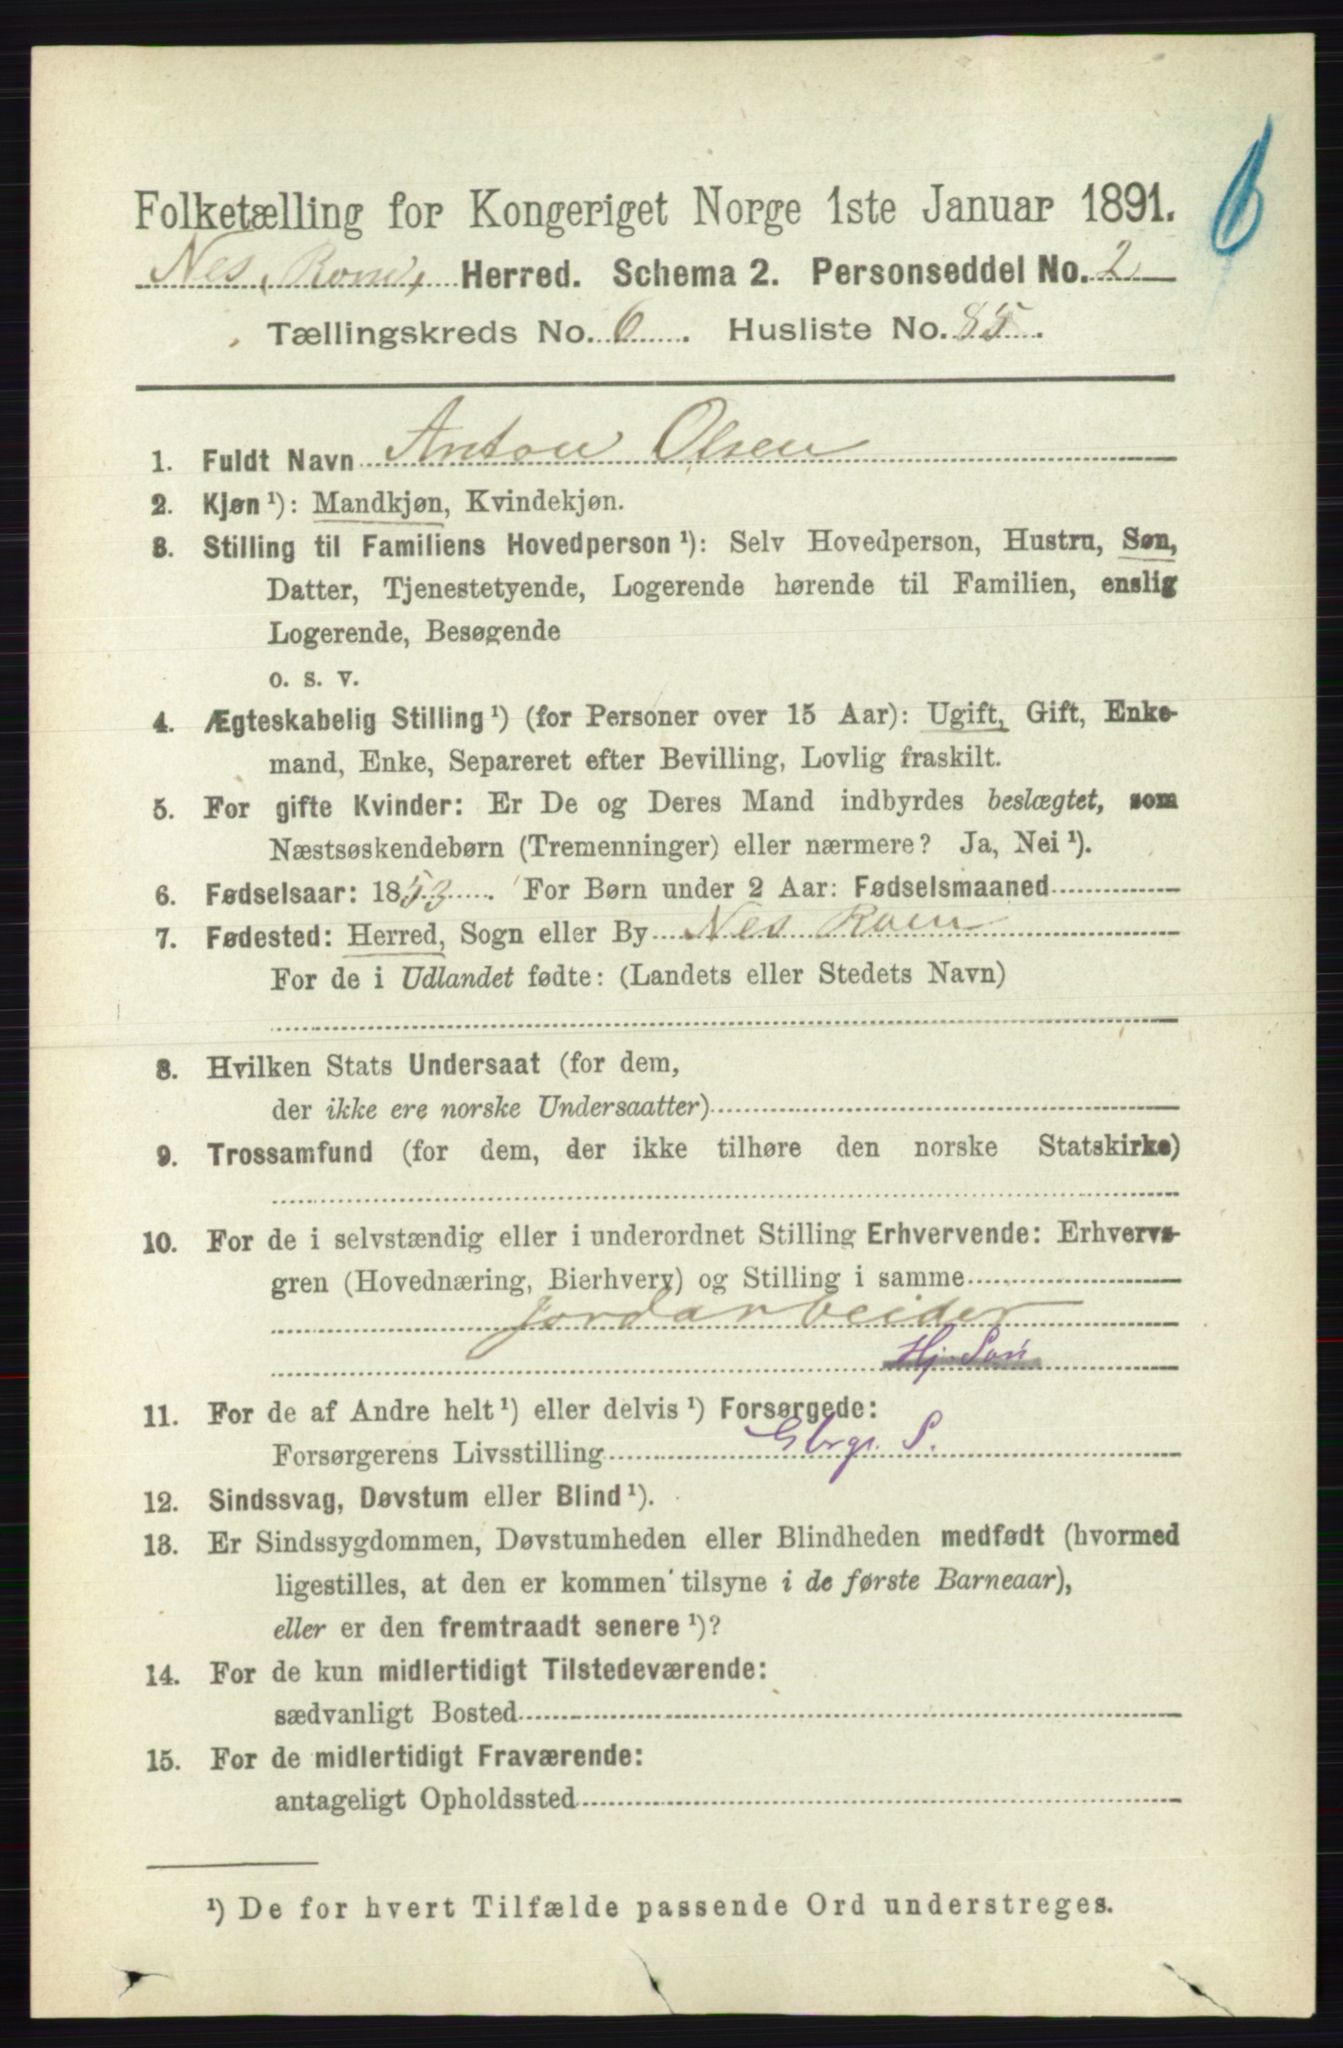 Folketælling for Kongeriget Norge 1ste Januar 1891.
Nes, Rom, Herred. Schema 2. Personseddel No. 2
Tællingskreds No. 6. Husliste No. 85.
1. Fuldt Navn Anton Olsen
2. Kjøn ¹): Mandkjøn, Kvindekjøn.
3. Stilling til Familiens Hovedperson ¹): Selv Hovedperson, Hustru, Søn,
Datter, Tjenestetyende, Logerende hørende til Familien, enslig
Logerende, Besøgende
o. s. v.
4. Ægteskabelig Stilling ¹) (for Personer over 15 Aar): Ugift, Gift, Enke-
mand, Enke, Separeret efter Bevilling, Lovlig fraskilt.
5. For gifte Kvinder: Er De og Deres Mand indbyrdes beslægtet, som
Næstsøskendebørn (Tremenninger) eller nærmere? Ja, Nei ¹).
6. Fødselsaar: 1853. For Børn under 2 Aar: Fødselsmaaned
7. Fødested: Herred, Sogn eller By Nes Rom
For de i Udlandet fødte: (Landets eller Stedets Navn)
8. Hvilken Stats Undersaat (for dem,
der ikke ere norske Undersaatter)
9. Trossamfund (for dem, der ikke tilhøre den norske Statskirke)
10. For de i selvstændig eller i underordnet Stilling Erhvervende: Erhvervs-
gren (Hovednæring, Bierhverv) og Stilling i samme
jordarbeider
Hj. Søn
11. For de af Andre helt ¹) eller delvis ¹) Forsørgede:
Forsørgerens Livsstilling Gbrgr. S.
12. Sindssvag, Døvstum eller Blind ¹).
13. Er Sindssygdommen, Døvstumheden eller Blindheden medfødt (hvormed
ligestilles, at den er kommen tilsyne i de første Barneaar),
eller er den fremtraadt senere ¹)?
14. For de kun midlertidigt Tilstedeværende:
sædvanligt Bosted
15. For de midlertidigt Fraværende:
antageligt Opholdssted
¹) De for hvert Tilfælde passende Ord understreges.